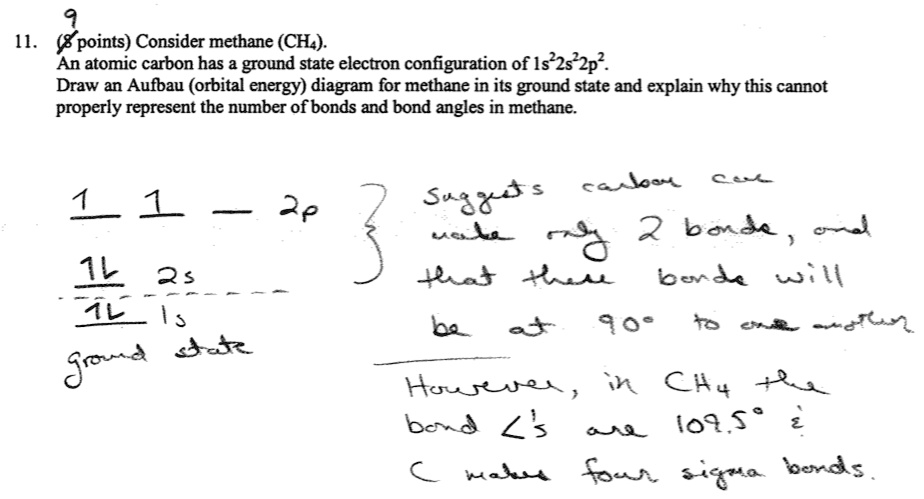 9
11. (8 points) Consider methane (CH₄).
An atomic carbon has a ground state electron configuration of 1s²2s²2p².
Draw an Aufbau (orbital energy) diagram for methane in its ground state and explain why this cannot
properly represent the number of bonds and bond angles in methane.
1 1 2p
1L 2s
1L 1s
ground state
Suggests carbon can
make only 2 bonds, and
that these bonds will
be at 90° to one another
However, in CH4 the
bond ∠'s are 109.5° &
C makes four sigma bonds.